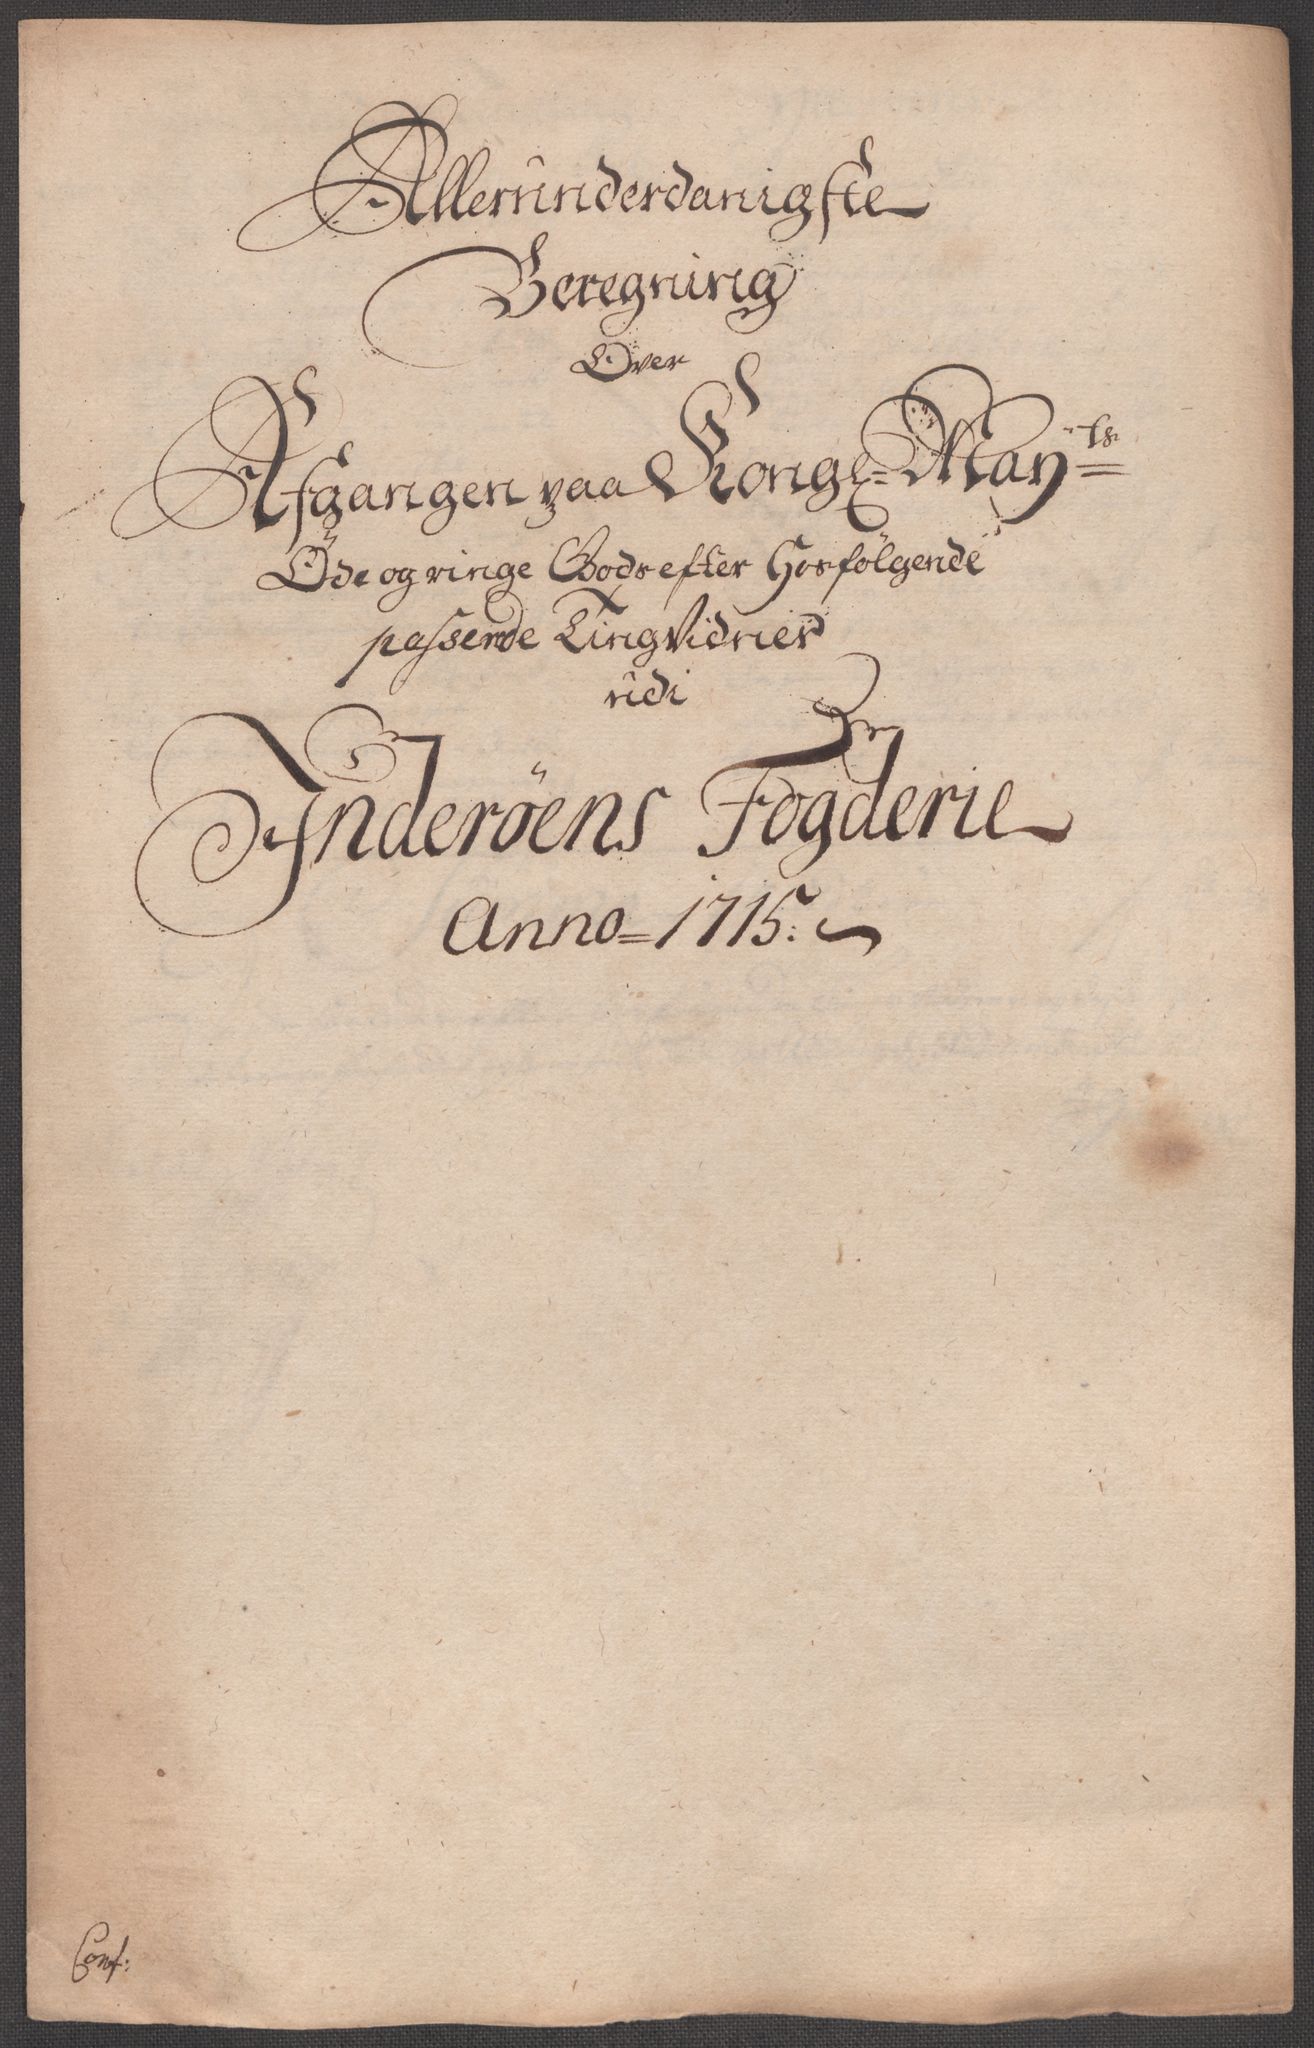 Allerunderdanigste
Beregning
Over
Afgangen paa Kongl= May:ts
Öde og ringe Godsefter Hosfölgende
passerede TingVidner
udi
Inderöens Fogderie
Anno=1715:
Conf: